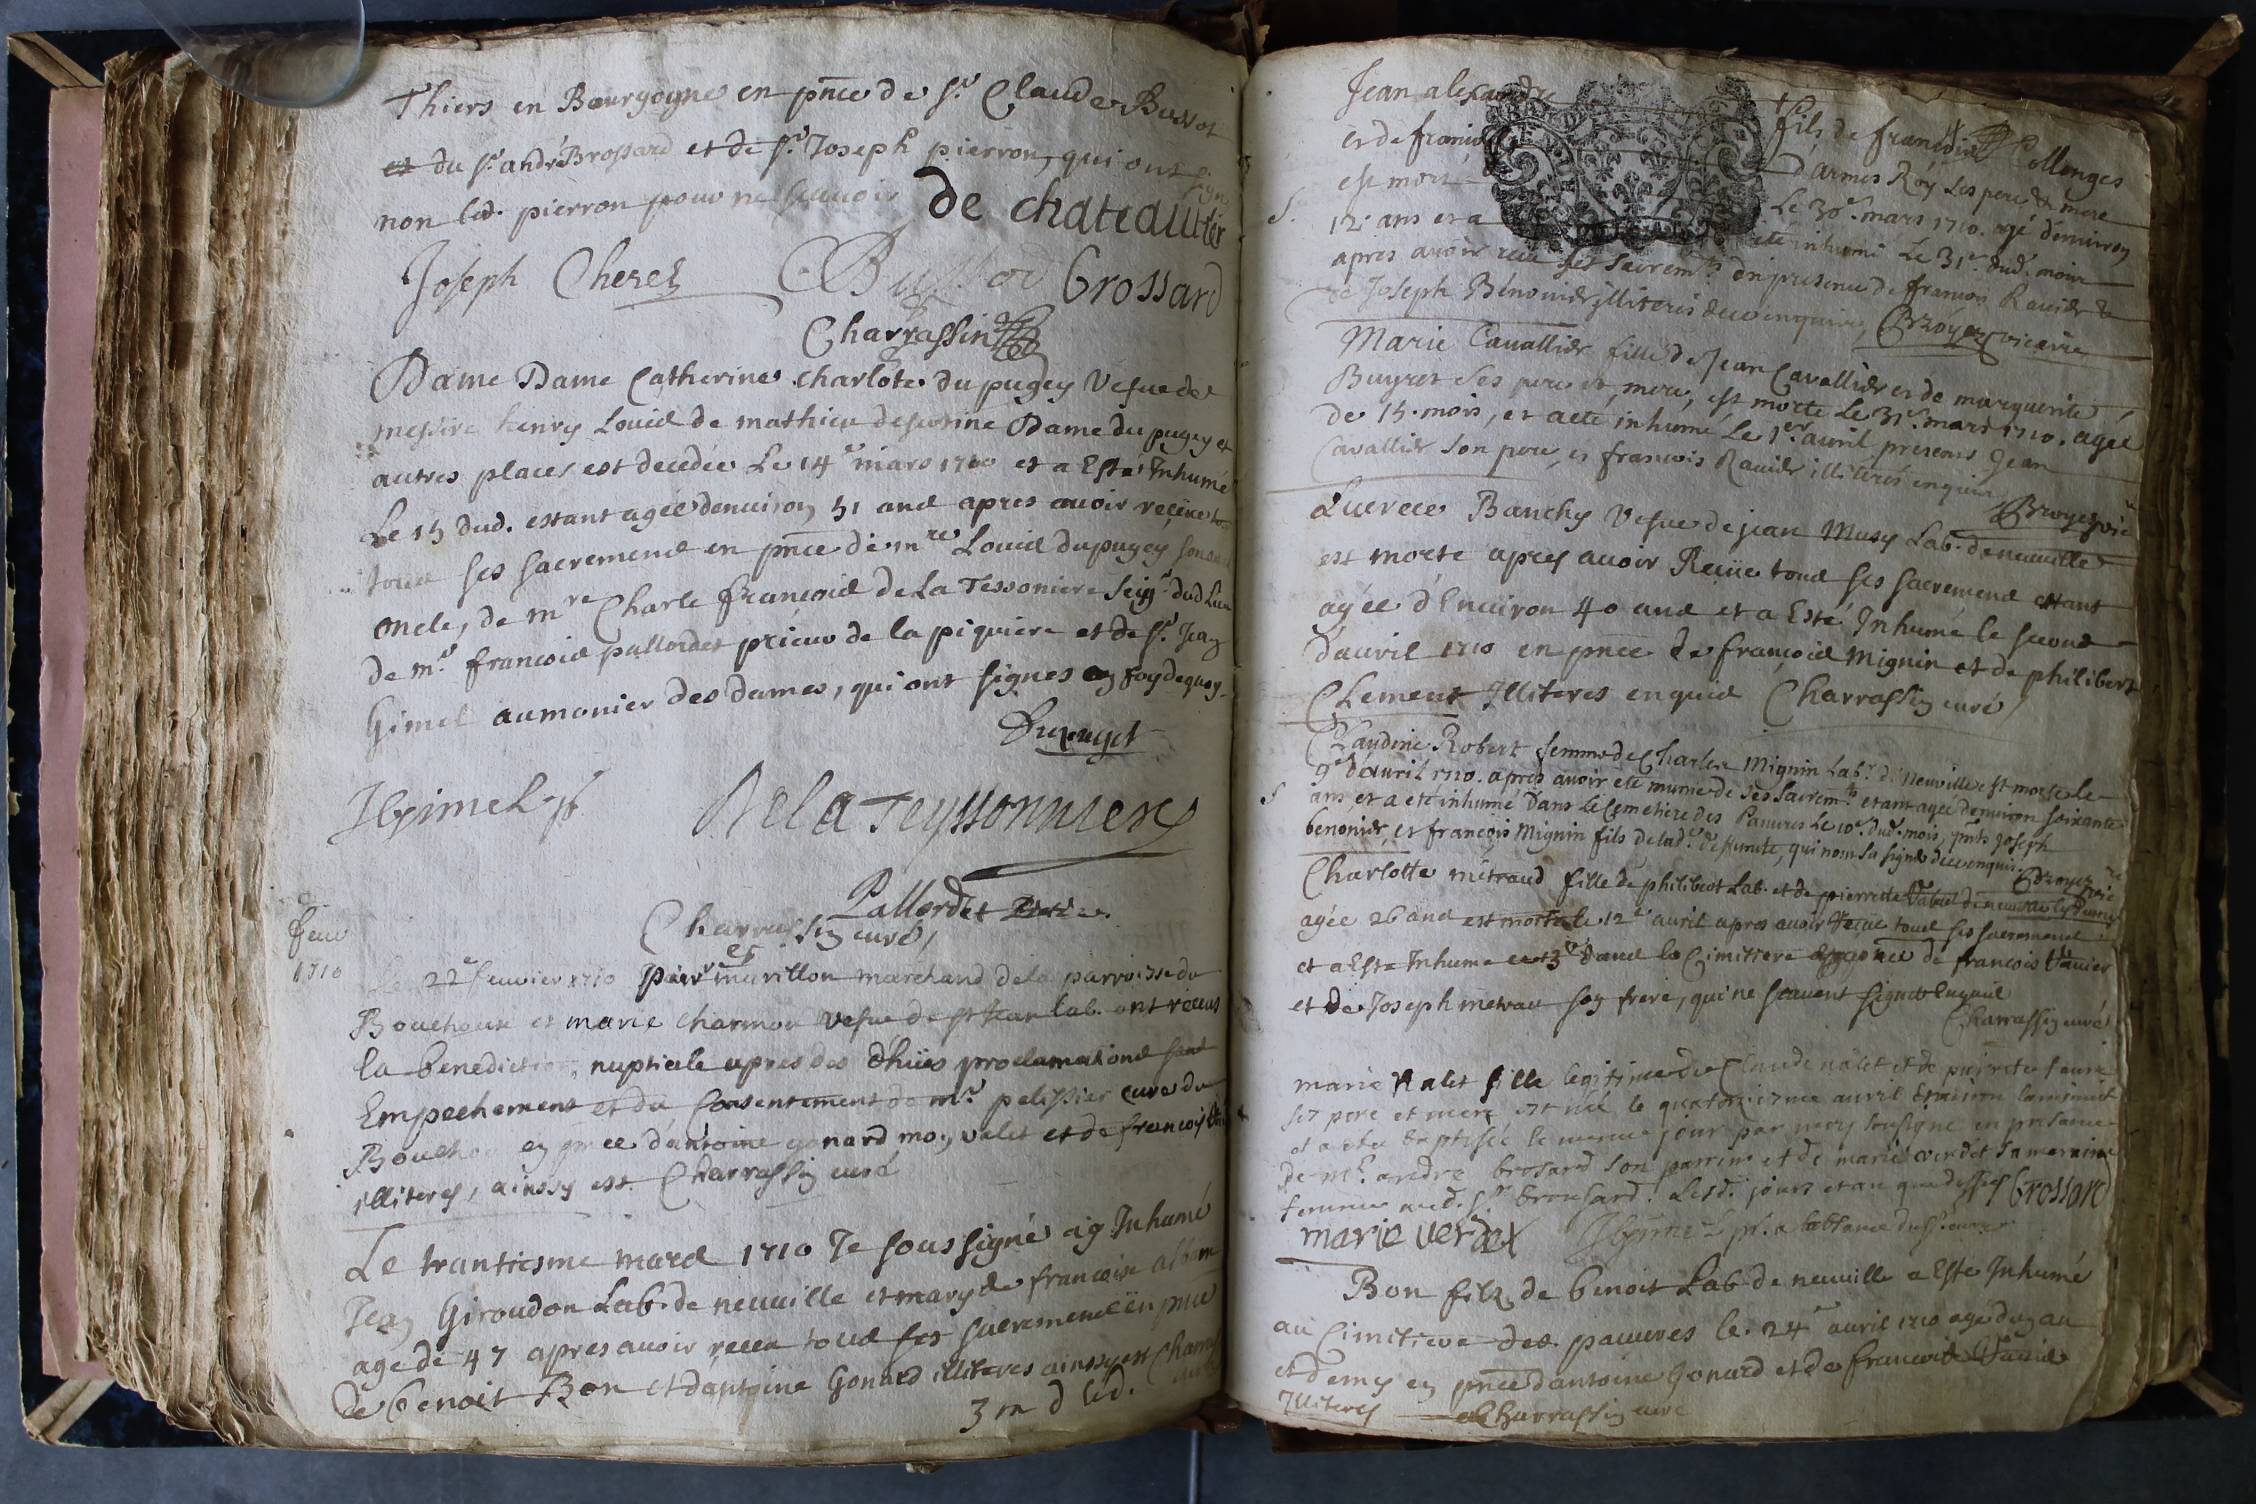 Thiers en Bourgogne en pnce de sr Claude Bussot
et du sr andré Brossard et de sr Joseph pierron, qui ont signé
non led. pierron pour ne scauoir de chateautier
Joseph Cherel Bussod Brossard
Charrassin
Dame Dame Catherine charlote du pugey Vefue de
messire henry Louid de mathieu Dame du pugey et
autres places est decedée Le 14e mars 1710 et a Esté Inhumé
Le 15 dud. estant agée denuiron 51 and apres auoir reçeue
toud ses sacremend en pnce de mre Louid dupugey son
oncle, de mre Charle francoid de La Tessoniere Seigr dud
de mr francoid pallordet prieur de la piquiere et de sr Jean
Gimel aumonier des dames, qui ont signes en foy de quoy
Dupuget
JGimel
De la Teyssonniere
Pallordet
Charrassin curé,
feur
1710
le 22e feurier 1710 murillon marchand de la parroisse du
Bouchoux et marie charmon vefue de lab. ont receus
la benediction nuptiale apres des dhües proclamationd sand
Empechement et du Consentement de mr pelissier curé du
Bouchou en pnce d'antoine gonard moy valet et de francois
illiteres, ainssy est Charrassin curé
Le trantiesme mard 1710 Je soussigné ay Inhumé
Jean Giroudon Lab. de neuuille et mary de francoise
agé de 47 apres auoir receu toud ses sacremend en pnce
de benoit Bon et dantoine Gonard illiteres ainssy est
3 m d led.
Jean alexandre fils de francois Collenges
et de francoise d'armes Roy Les pere & mere
est mort Le 30e mars 1710. agé denuiron
S. 12. ans et a eté inhumé Le 31e dud. mois
apres auoir receu ses sacremts en presence de francois Rauier &
de Joseph Bénonier illiterés de ce enquis, Broyer vicaire
Marie Cavallier fille de Jean Cavallier et de marguerite
Buyret ses pere et mere, est morte Le 31e mars 1710. agée
de 15. mois, et a eté inhumé Le 1er auril, presens Jean
Cavallier son pere, et francois Rauier illiterés enquis
Broyer vic
Lucrece Banchy Vefue de jean Musy Lab. de neuuille
est morte apres auoir Reçüe toud ses sacremend estant
agée d'Enuiron 40 and et a Esté Inhumé le second
d'auril 1710 en pnce de francoid Mignin et de philibert
Clement Illiteres enquid Charrassin curé
Claudine Robert femme de Charles Mignin Labr de Neuville est morte le
9e d'auril 1710. apres auoir eté munie de ses sacremts etant agée denuiron soixante
S ans et a eté inhumé Dans Le Cemetiere des Pauures Le 10e dud. mois, pnts Joseph
benonier, et francois Mignin fils de lad. defunte, qui n'ont sa signer de ce enquis. Broyer vic
Charlotte métraud fille de philibert Lab. et de pierrette
agée 26 and est morte le 12e auril apres auoir reçue toud ses sacremend
et a Esté Inhumé Dand le Cimitiere en pnce de francois Vauier
et de Joseph metrau son frere, qui ne scauent signer Enquid
Charrassin curé
marie Nalet fille legitime de Claude nalet et de
ses pere et mere est née le quatorzieme auril Enuiron la minuit
et a eté baptisée le mesme jour par moy soussigné en presance
de mr andre brosard son parrin et de marie verdet sa meraine
femme aud. sr brousard. Lesd. jours et an que dessus Brossard
marie verdet JGimel pr. a labsance du sr curé
Bon filz de benoit Lab de neuuille a Esté Inhumé
au Cimitiere ded pauures le 24e auril 1710 agé dun an
et demy en pnce dantoine Gonard et de francoid Vauier
Illiteres Charrassin curé